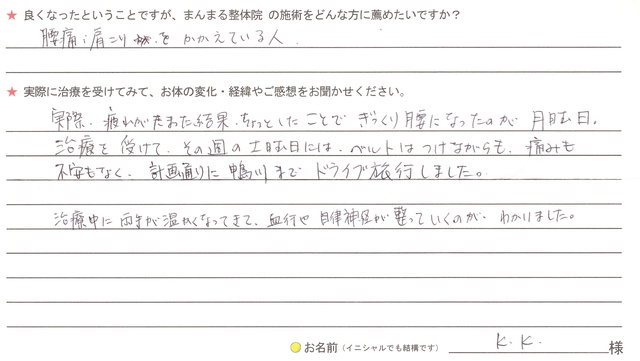 ★ 良くなったということですが、まんまる整体院 の施術をどんな方に薦めたいですか？
腰痛、肩こり をかかえている人
★ 実際に治療を受けてみて、お体の変化・経緯やご感想をお聞かせください。
実際、疲れがたまった結果、ちょっとしたことでぎっくり腰になったのが月曜日。
治療を受けて、その週の土曜日には、ベルトはつけながらも、痛みも
不安もなく、計画通りに鴨川までドライブ旅行しました。
治療中に両手が温かくなってきて、血行や自律神経が整っていくのが、わかりました。
お名前（イニシャルでも結構です） K. K. 様